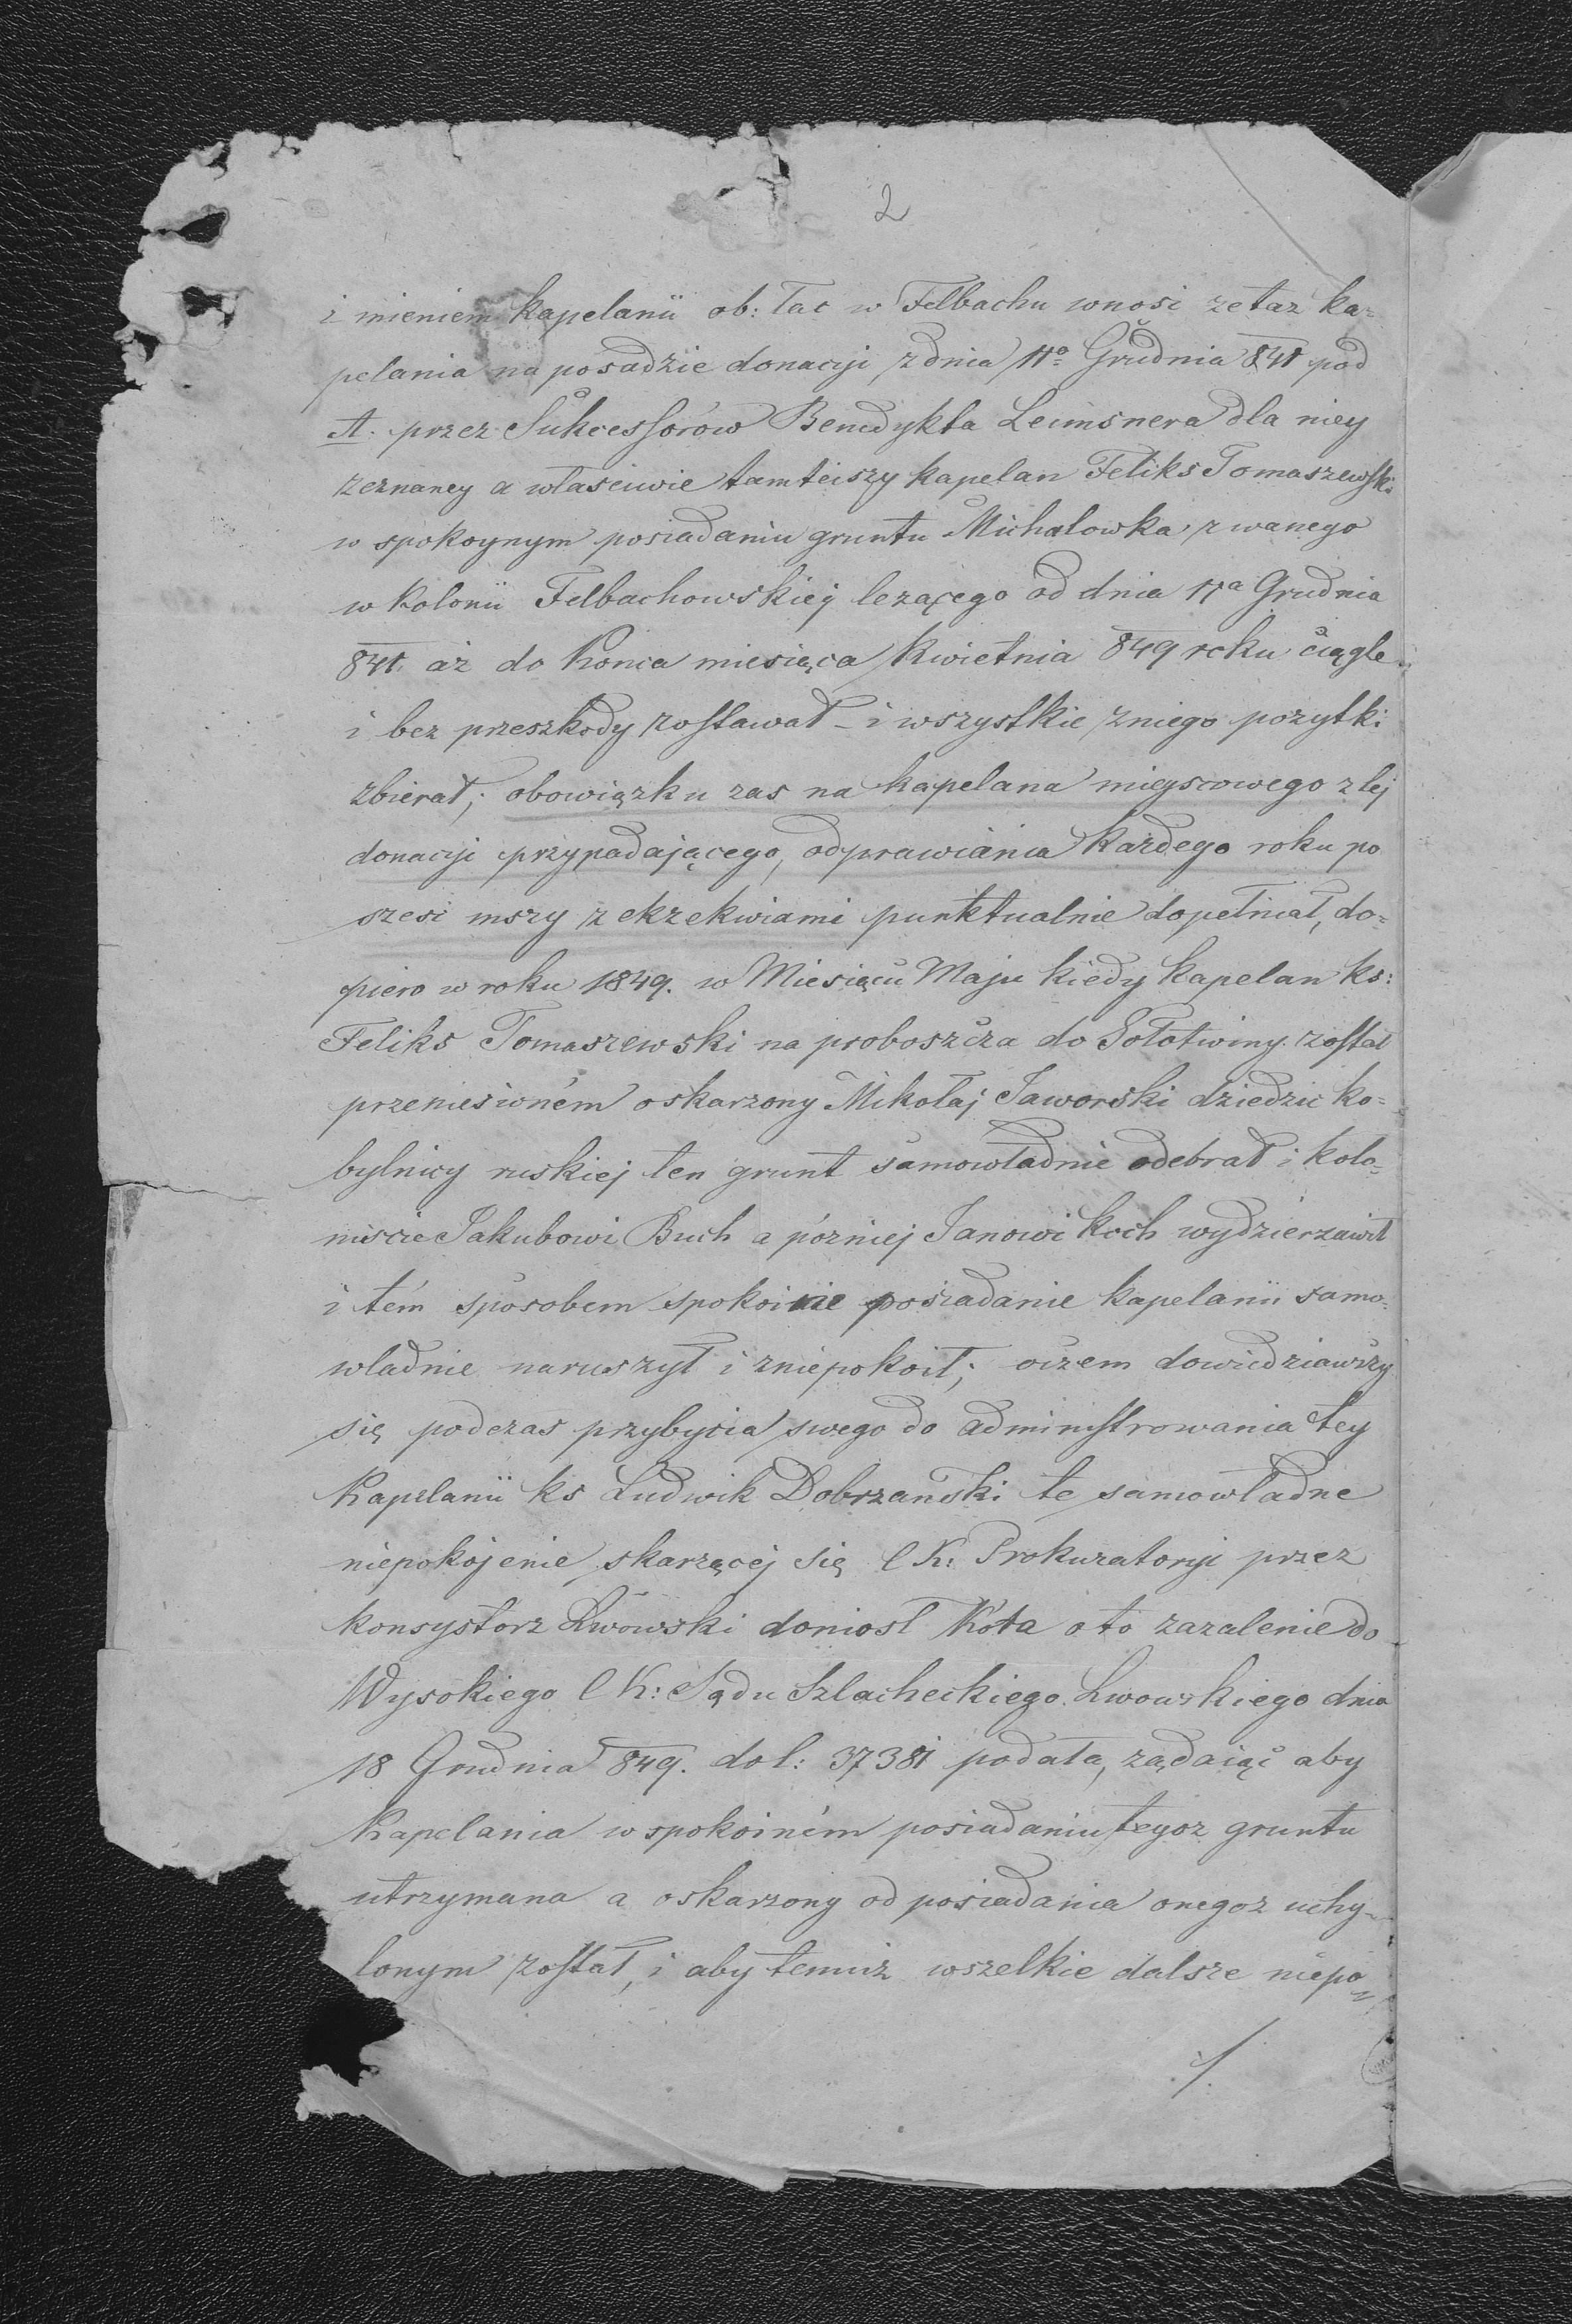 2
imieniem kapelanii ob: łac w Felbachu wnosi żetaz ka-
pelania na posadzie donacji z dnia 11º Grudnia 841 pod
A. przez Sukcessorów Benedykta Leimsnera dla niey
zeznaney a własciwie tamteiszy kapelan Feliks Tomaszewski
w spokoynym posiadaniu gruntu Michałowka zwanego
w kolonii Felbachowskiej lezącego od dnia 11ª Grudnia
841 aż do konca miesiąca Kwietnia 849 roku ciągle
i bez przeszkody zostawał - i wszystkie zniego pozytki
zbierał; obowiązku zas na kapelana miejscowego z tej
donacji przypadającego, odprawiania każdego roku po
szesi mszy z ekzekwiami punktualnie dopełniał, do=
piero w roku 1849. w Miesiącu Maju kiedy kapelan ks:
Feliks Tomaszewski na proboszcza do Sołotwiny został
przeniesioném oskarzony Mikołaj Jaworski dziedzic ko=
bylnicy ruskiej ten grunt samowładnie odebrał i kolo=
niscie Jakubowi Buch a pózniej Janowi Koch wydzierzawił
i tém sposobem spokoinie posiadanie kapelanii samo=
władnie naruszył i zniepokoił; oczem dowiedziawszy
się podczas przybycia swego do administrowania tey
Kapelanii ks Ludwik Dobrzański te samowładne
niepokojenie skarzącej się C K: Prokuratoryi przez
konsystorz Lwówski doniosł Kóta oto zazalenie do
Wysokiego C K: Sądu Szlacheckiego Lwowskiego dnia
18 Grudnia 849. do l: 37381 podała, ządaiąc aby
Kapelania w spokoiném posiadaniu tegoz gruntu
utrzymana a oskarzony od posiadania onegoz uchy-
lonym został, i aby temuż wszelkie dalsze niepo=
./.